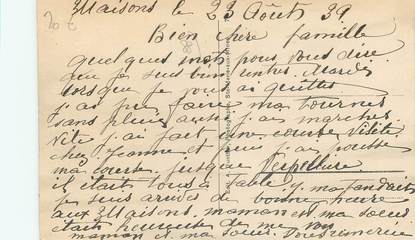 Maisons le 23 Août 39.
Bien chère famille
quelques mots pour vous dire
que je suis bien rentré Mardi
lorsque je vous ai quittés
j'ai pu faire ma tournée
sans pluie aussi j'ai marché
vite j'ai fait une courte visite
chez Jeanne et puis j'ai poussé
ma course jusque
il était tous à table
je suis arrivé de bonne heure
aux Maisons. maman et ma soeur
était heureuse de me
maman et ma soeur